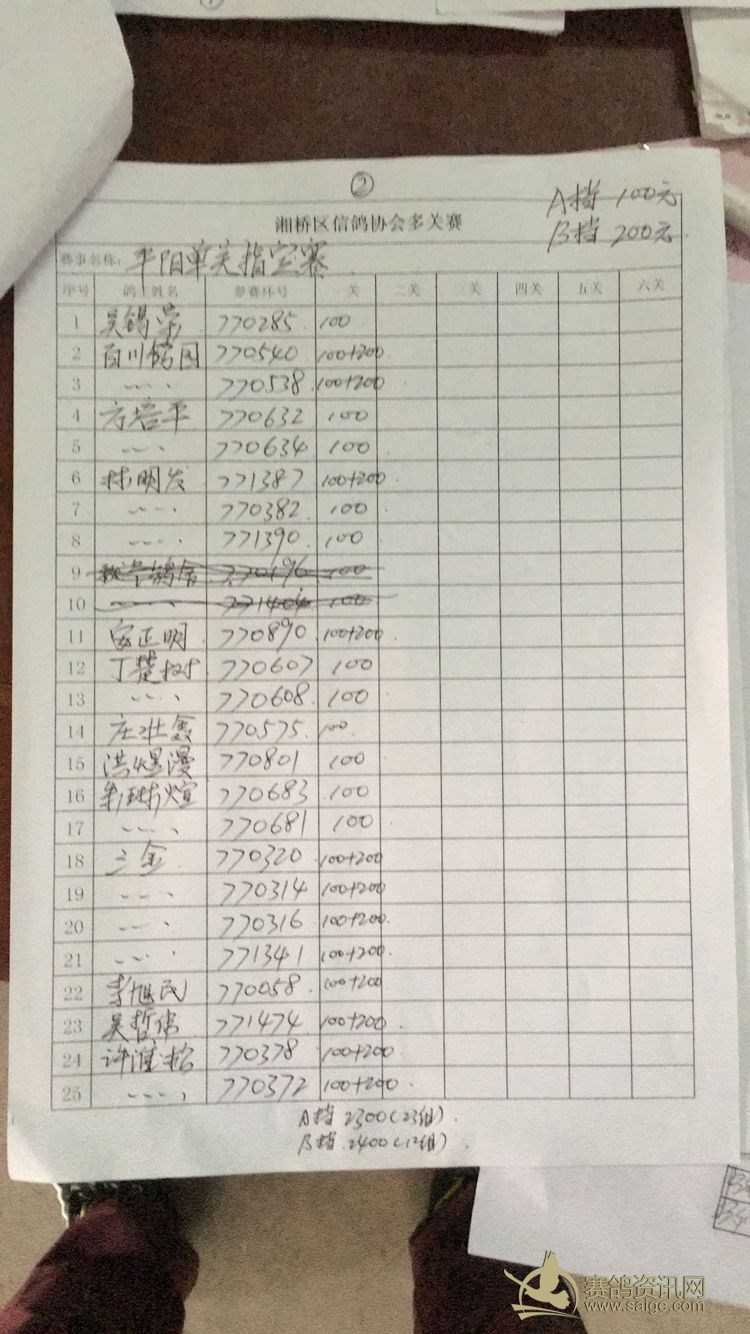 ②
A挡 100元
湘桥区信鸽协会多关赛
B挡 200元
赛事名称: 平阳单关指定赛
序号 鸽主姓名 参赛环号 一关 二关 三关 四关 五关 六关
1 吴锡荣 770285 100
2 百川鸽园 770540 100+200
3 〃 770538 100+200
4 方培平 770632 100
5 〃 770634 100
6 林明发 771387 100+200
7 〃 770382 100
8 〃 771390 100
9 770196 100
10 〃 771404 100
11 正明 770890 100+200
12 丁楚树 770607 100
13 〃 770608 100
14 庄壮鑫 770575 100
15 洪煜漫 770801 100
16 770683 100
17 〃 770681 100
18 三金 770320 100+200
19 〃 770314 100+200
20 〃 770316 100+200
21 〃 771341 100+200
22 李旭民 770058 100+200
23 吴哲伟 771474 100+200
24 许 770378 100+200
25 〃 770372 100+200
A挡 2300(23组)
B挡 2400(12组)
赛鸽资讯网
www.saige.com